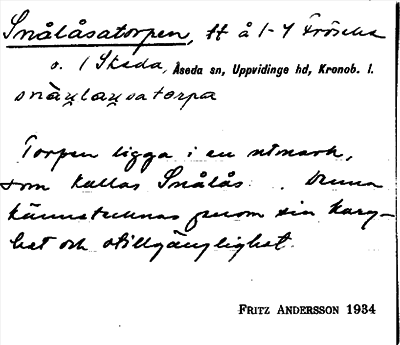 Snålåsatorpen, tt å 1-4 Fröseke
o. 1 Skeda, Åseda sn, Uppvidinge hd, Kronob. l.
snåu̯lau̯satorpa
Torpen ligga i en utmark,
som kallas Snålås. Denna
kännetecknas genom sin karg-
het och otillgänglighet.
FRITZ ANDERSSON 1934